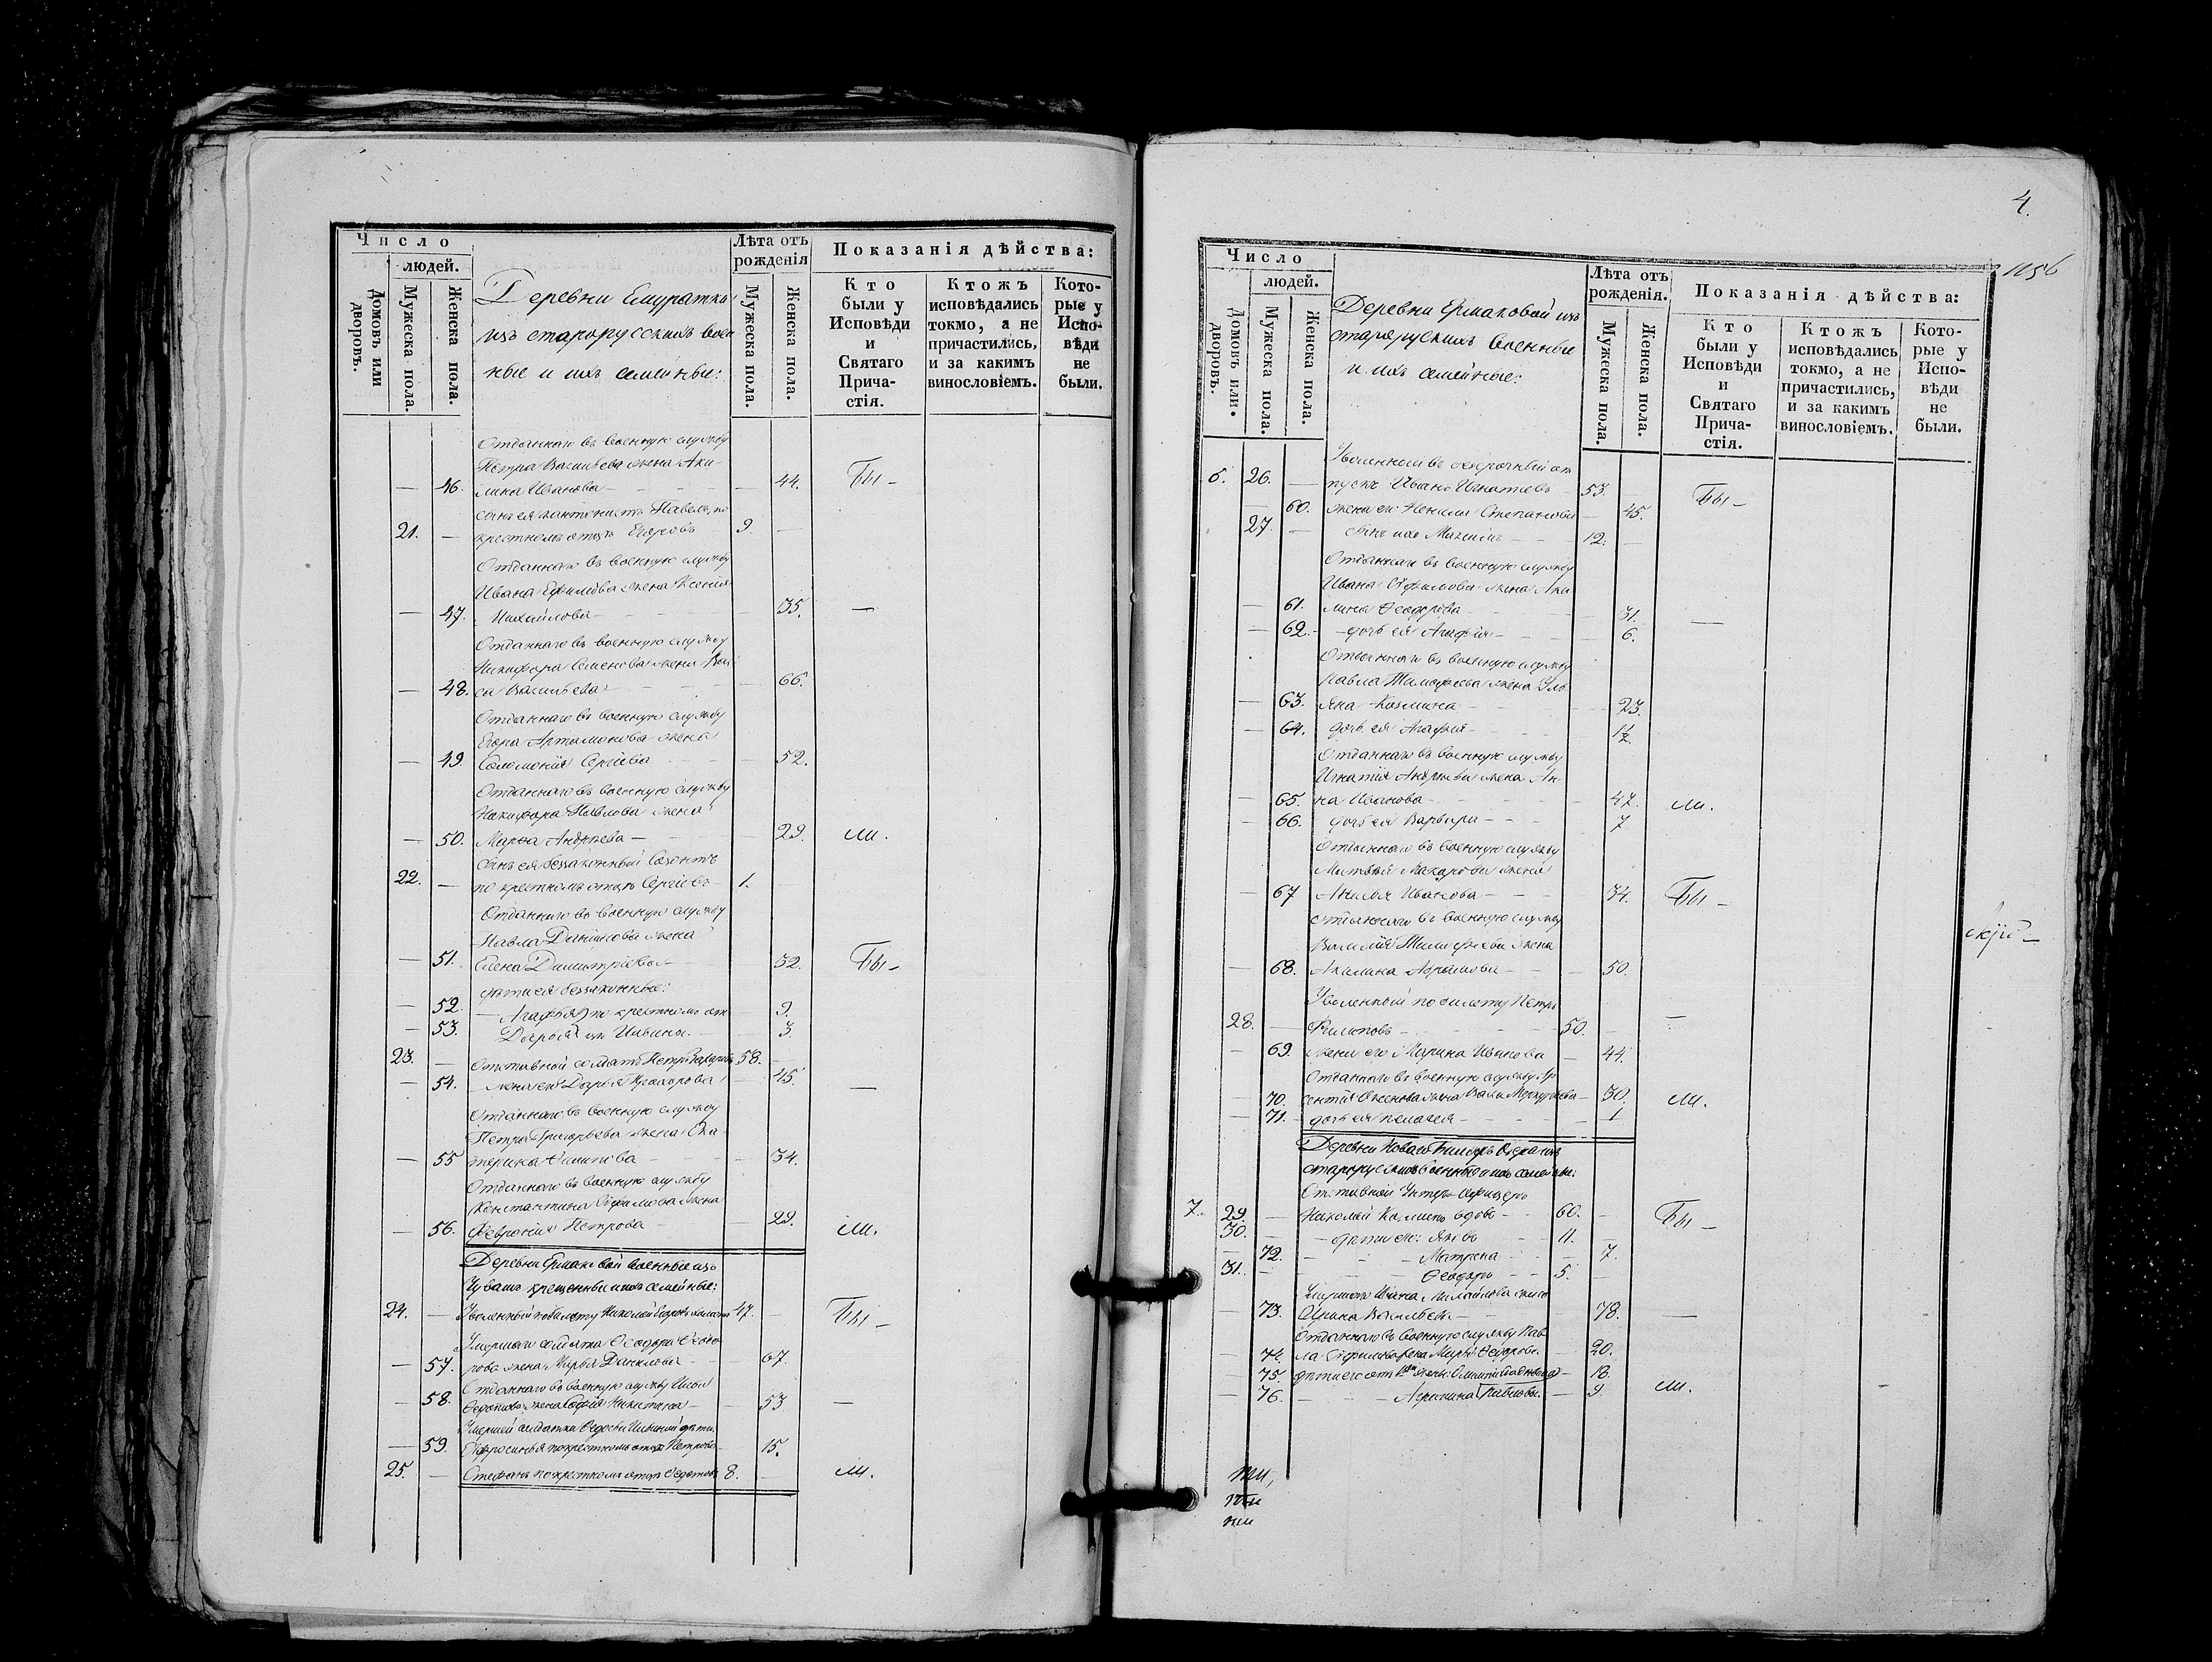 Число
людей.
Домовъ или дворовъ.
Мужеска пола.
Женска пола.
Деревни Емуратки
изъ старорусскихъ воен
ные и ихъ семейные:
Лѣта отъ рожденія
Мужеска пола.
Женска пола.
Показанія дѣйства:
Кто были у Исповѣди и Святаго Прича-стія.
Ктожъ исповѣдались токмо, а не причастились, и за какимъ винословіемъ.
Кото-рые у Испо-вѣди не были.
Отданнаго въ военную службу
Петра Васильева жена Аки-
— 46. лина Иванова — 44. Бы —
сынъ ея кантонистъ Павелъ, по
21. — крестномъ отцѣ Егоровъ 9. —
Отданнаго въ военную службу
Ивана Ефимова жена Ксения
— 47. Михайлова — 35. —
Отданнаго въ военную службу
Никифора Семенова жена Вас
— 48. са Васильева — 66.
Отданнаго въ военную службу
Егора Артамонова жена
— 49. Соломонія Сергіева 52.
Отданнаго въ военную службу
Никифора Павлова жена
— 50. Марѳа Андреева — 29. ли.
сынъ ея беззаконный
22. — по крестномъ отцѣ Сергіевъ 1.
Отданнаго въ военную службу
Павла Данилова жена
— 51. Елена Димитріева — 32. Бы —
дѣти ея беззаконные:
— 52. Агафія по крестномъ от 9.
— 53. Дарья цѣ 3.
23. — Отставной солдатъ Петръ Захаровъ 58.
— 54. жена его Дарья Прохорова 45. —
Отданнаго въ военную службу
Петра Григорьева жена Ека
— 55 терина Филипова 34.
Отданнаго въ военную службу
Константина Ефимова жена
— 56. Февронія Петрова — 29. ли.
Деревни Ермаковой военные изъ
Чувашъ крещенные и ихъ семейные:
24. — Уволенный по билету Николай 47. Бы —
Умершаго солдата Ѳеодора Ѳеодо
— 57. рова жена Марѳа Данилова 67.
Отданнаго въ военную службу
— 58. жена Софія Никитина — 53 —
Умершей солдатки
— 59. Ефросинья по крестномъ отцѣ Петрова 15.
25. — Стефанъ по крестномъ отцѣ Ѳедотовъ 8. — ли.
4.
1156
Число
людей.
Домовъ или дворовъ.
Мужеска пола.
Женска пола.
Деревни Ермаковой изъ
старорускихъ военные
и ихъ семейные:
Лѣта отъ рожденія.
Мужеска пола.
Женска пола.
Показанія дѣйства:
Кто были у Исповѣди и Святаго Прича-стія.
Ктожъ исповѣдались токмо, а не причастились, и за какимъ винословіемъ.
Кото-рые у Испо-вѣди не были.
Уволенный въ безсрочный от
6. 26. — пускъ Иванъ Игнатьевъ 53. Бы —
— 60. жена его Ненила Степанова — 45.
27. — сынъ ихъ Максимъ 12. —
Отданнаго въ военную службу
Ивана Ефимова жена Аки
— 61. лина Ѳеодорова 31. —
— 62. дочь ея Агафія 6.
Отданнаго въ военную службу
Павла Тимофеева жена Улья
— 63. яна Козмина 23.
— 64. дочь ея Агафія 1/2
Отданнаго въ военную службу
Игнатія Андреева жена Ан-
— 65. на Иванова 47. ли.
— 66. дочь ея Варвара 7
Отданнаго въ военную службу
Матвѣя Макарова жена
— 67 Иванова 34. Бы —
Отданнаго въ военную службу
Василія Тимофеева жена
— 68. Акилина 50.
Уволенный по билету Петръ
28. — Филиповъ 50. — —
— 69. жена его Марина Иванова — 44.
Отданнаго въ военную службу Ар
— 70. сентія жена Васса Меркурьева — 30. ли.
— 71. дочь ея Пелагея 1
Деревни Новаго изъ
старорусскихъ военные и ихъ семейные.
Отставной Унтеръ Офицеръ
7. 29. — Николай вдовъ 60. — Бы —
30. дѣти его: Яковъ 11. —
— 72. Матрена — 7.
31. Ѳеодоръ 5. —
Умершаго Ивана Михайлова жена
— 73. Ирина Васильева 78. —
Отданнаго въ военную службу Пав
— 74. ла Ефимова жена Марѳа Ѳедорова 20.
— 75 дѣти его отъ 1й жены: 18.
— 76. Агрипина Павлова. 9. ли.
скій —